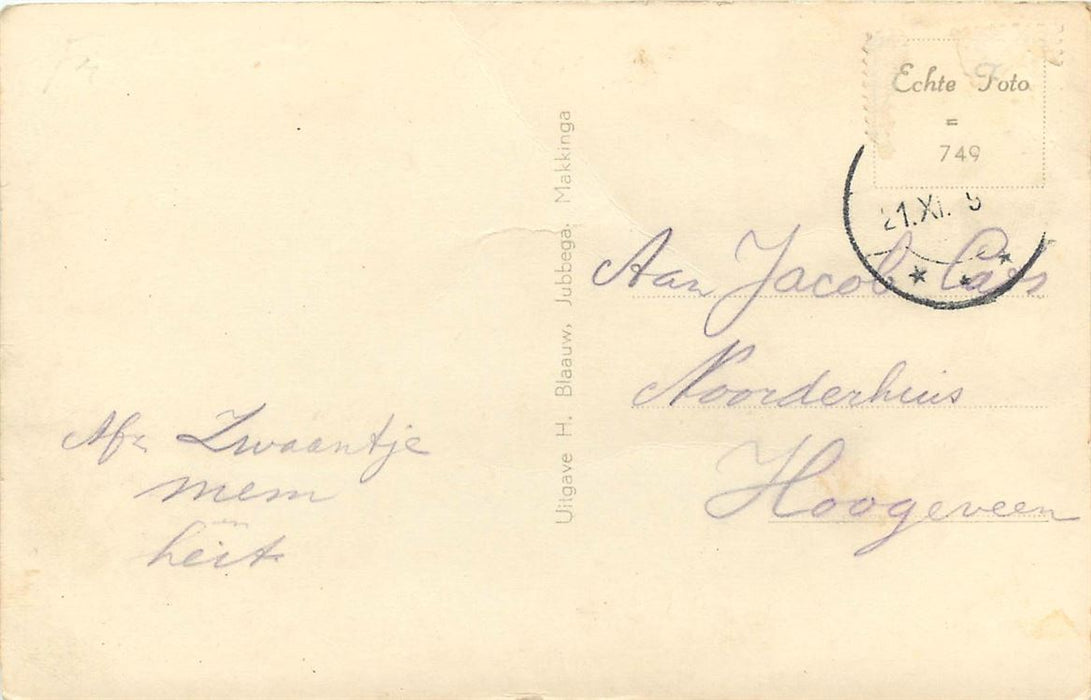 Echte Foto
=
749
21.XI. 5
Aan Jacob
Noorderhuis
Hoogeveen
Uitgave H. Blaauw, Jubbega: Makkinga
Afz Zwaantje
mem
en
heit